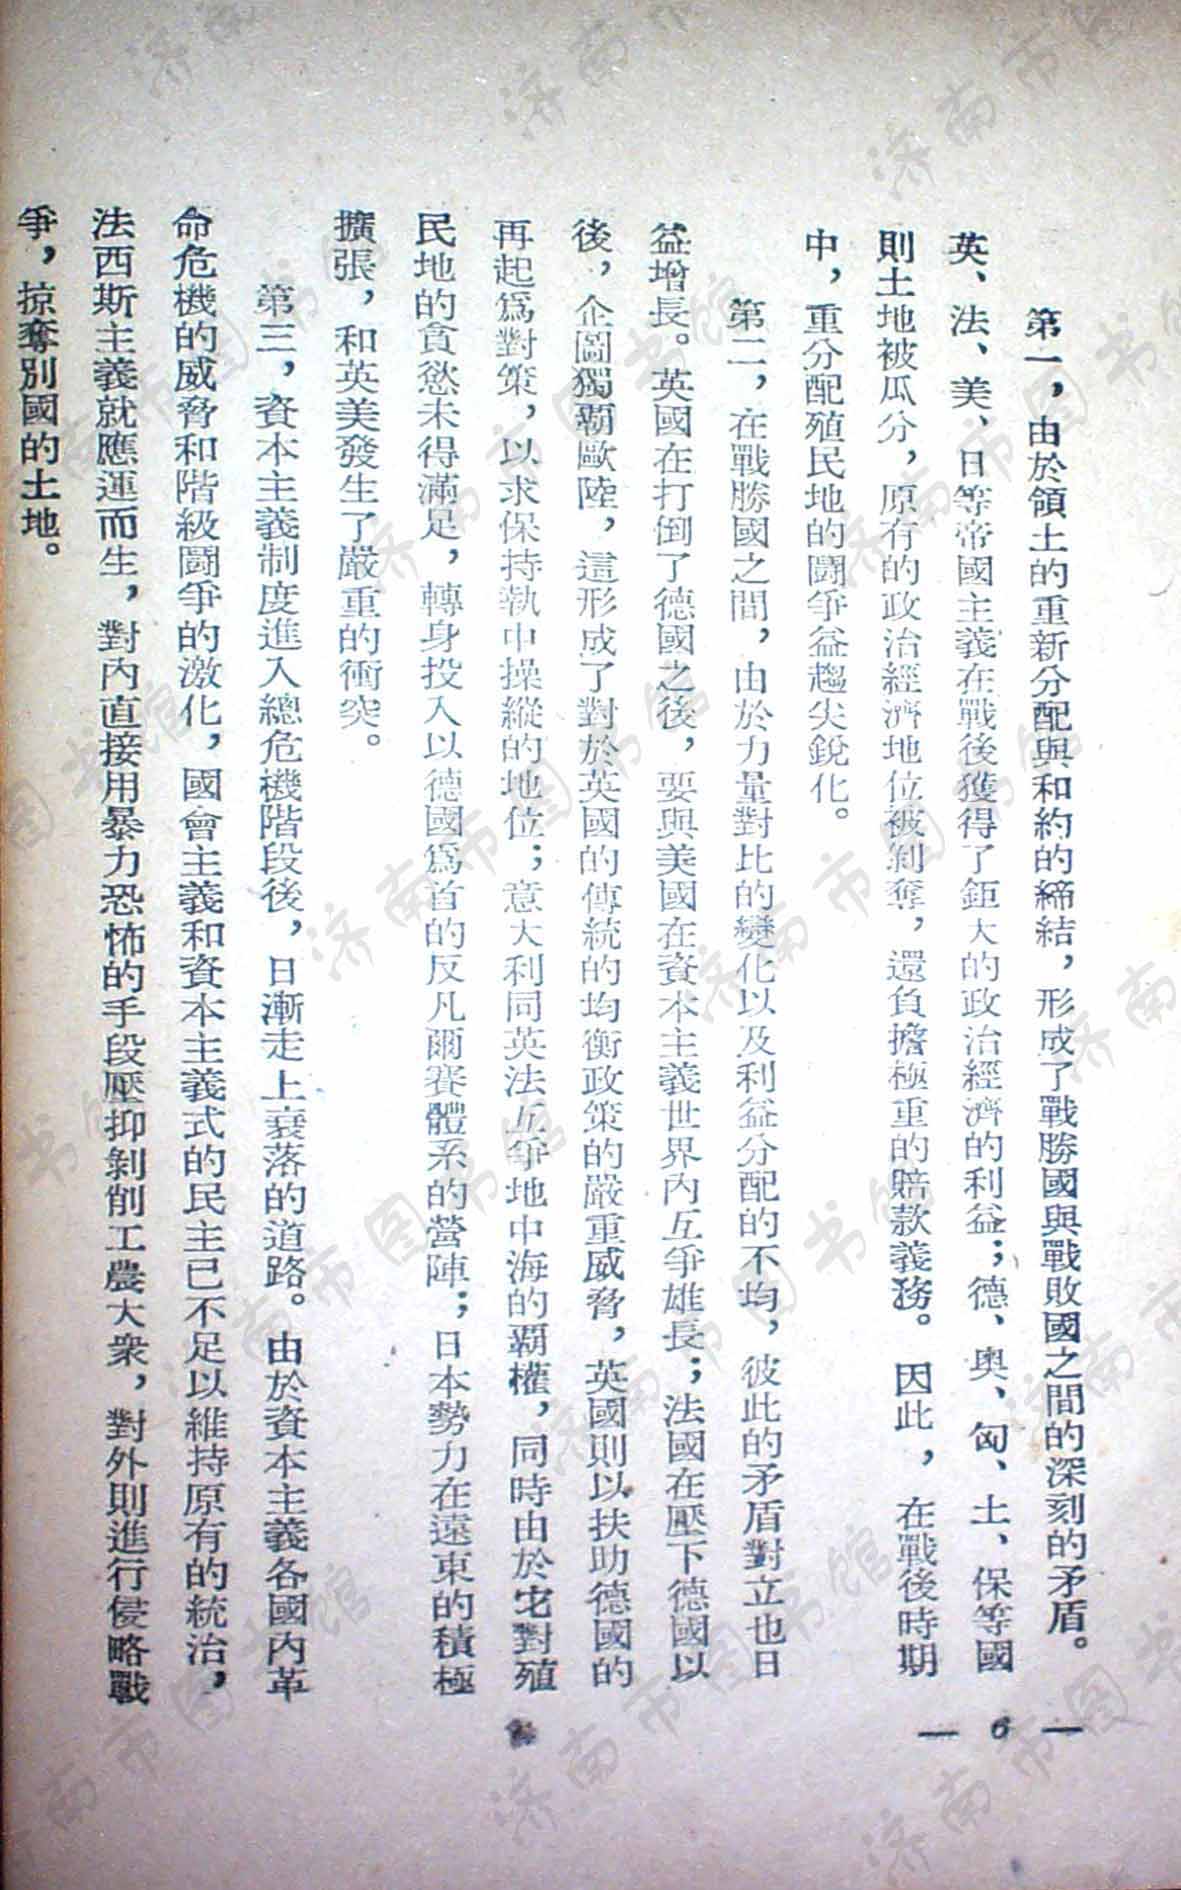 第一，由於領土的重新分配與和約的締結，形成了戰勝國與戰敗國之間的深刻的矛盾。
英、法、美、日等帝國主義在戰後獲得了鉅大的政治經濟的利益；德、奧、匈、土、保等國
則土地被瓜分，原有的政治經濟地位被剝奪，還負擔極重的賠款義務。因此，在戰後時期
中，重分配殖民地的鬪爭益趨尖銳化。
第二，在戰勝國之間，由於力量對比的變化以及利益分配的不均，彼此的矛盾對立也日
益增長。英國在打倒了德國之後，要與美國在資本主義世界內互爭雄長；法國在壓下德國以
後，企圖獨霸歐陸，這形成了對於英國的傳統的均衡政策的嚴重威脅，英國則以扶助德國的
再起爲對策，以求保持執中操縱的地位；意大利同英法互爭地中海的覇權，同時由於它對殖
民地的貪慾未得滿足，轉身投入以德國爲首的反凡爾賽體系的營陣；日本勢力在遠東的積極
擴張，和英美發生了嚴重的衝突。
第三，資本主義制度進入總危機階段後，日漸走上衰落的道路。由於資本主義各國內革
命危機的威脅和階級鬪爭的激化，國會主義和資本主義式的民主已不足以維持原有的統治，
法西斯主義就應運而生，對內直接用暴力恐怖的手段壓抑剝削工農大衆，對外則進行侵略戰
爭，掠奪別國的土地。
— 6 —
济南市图书馆